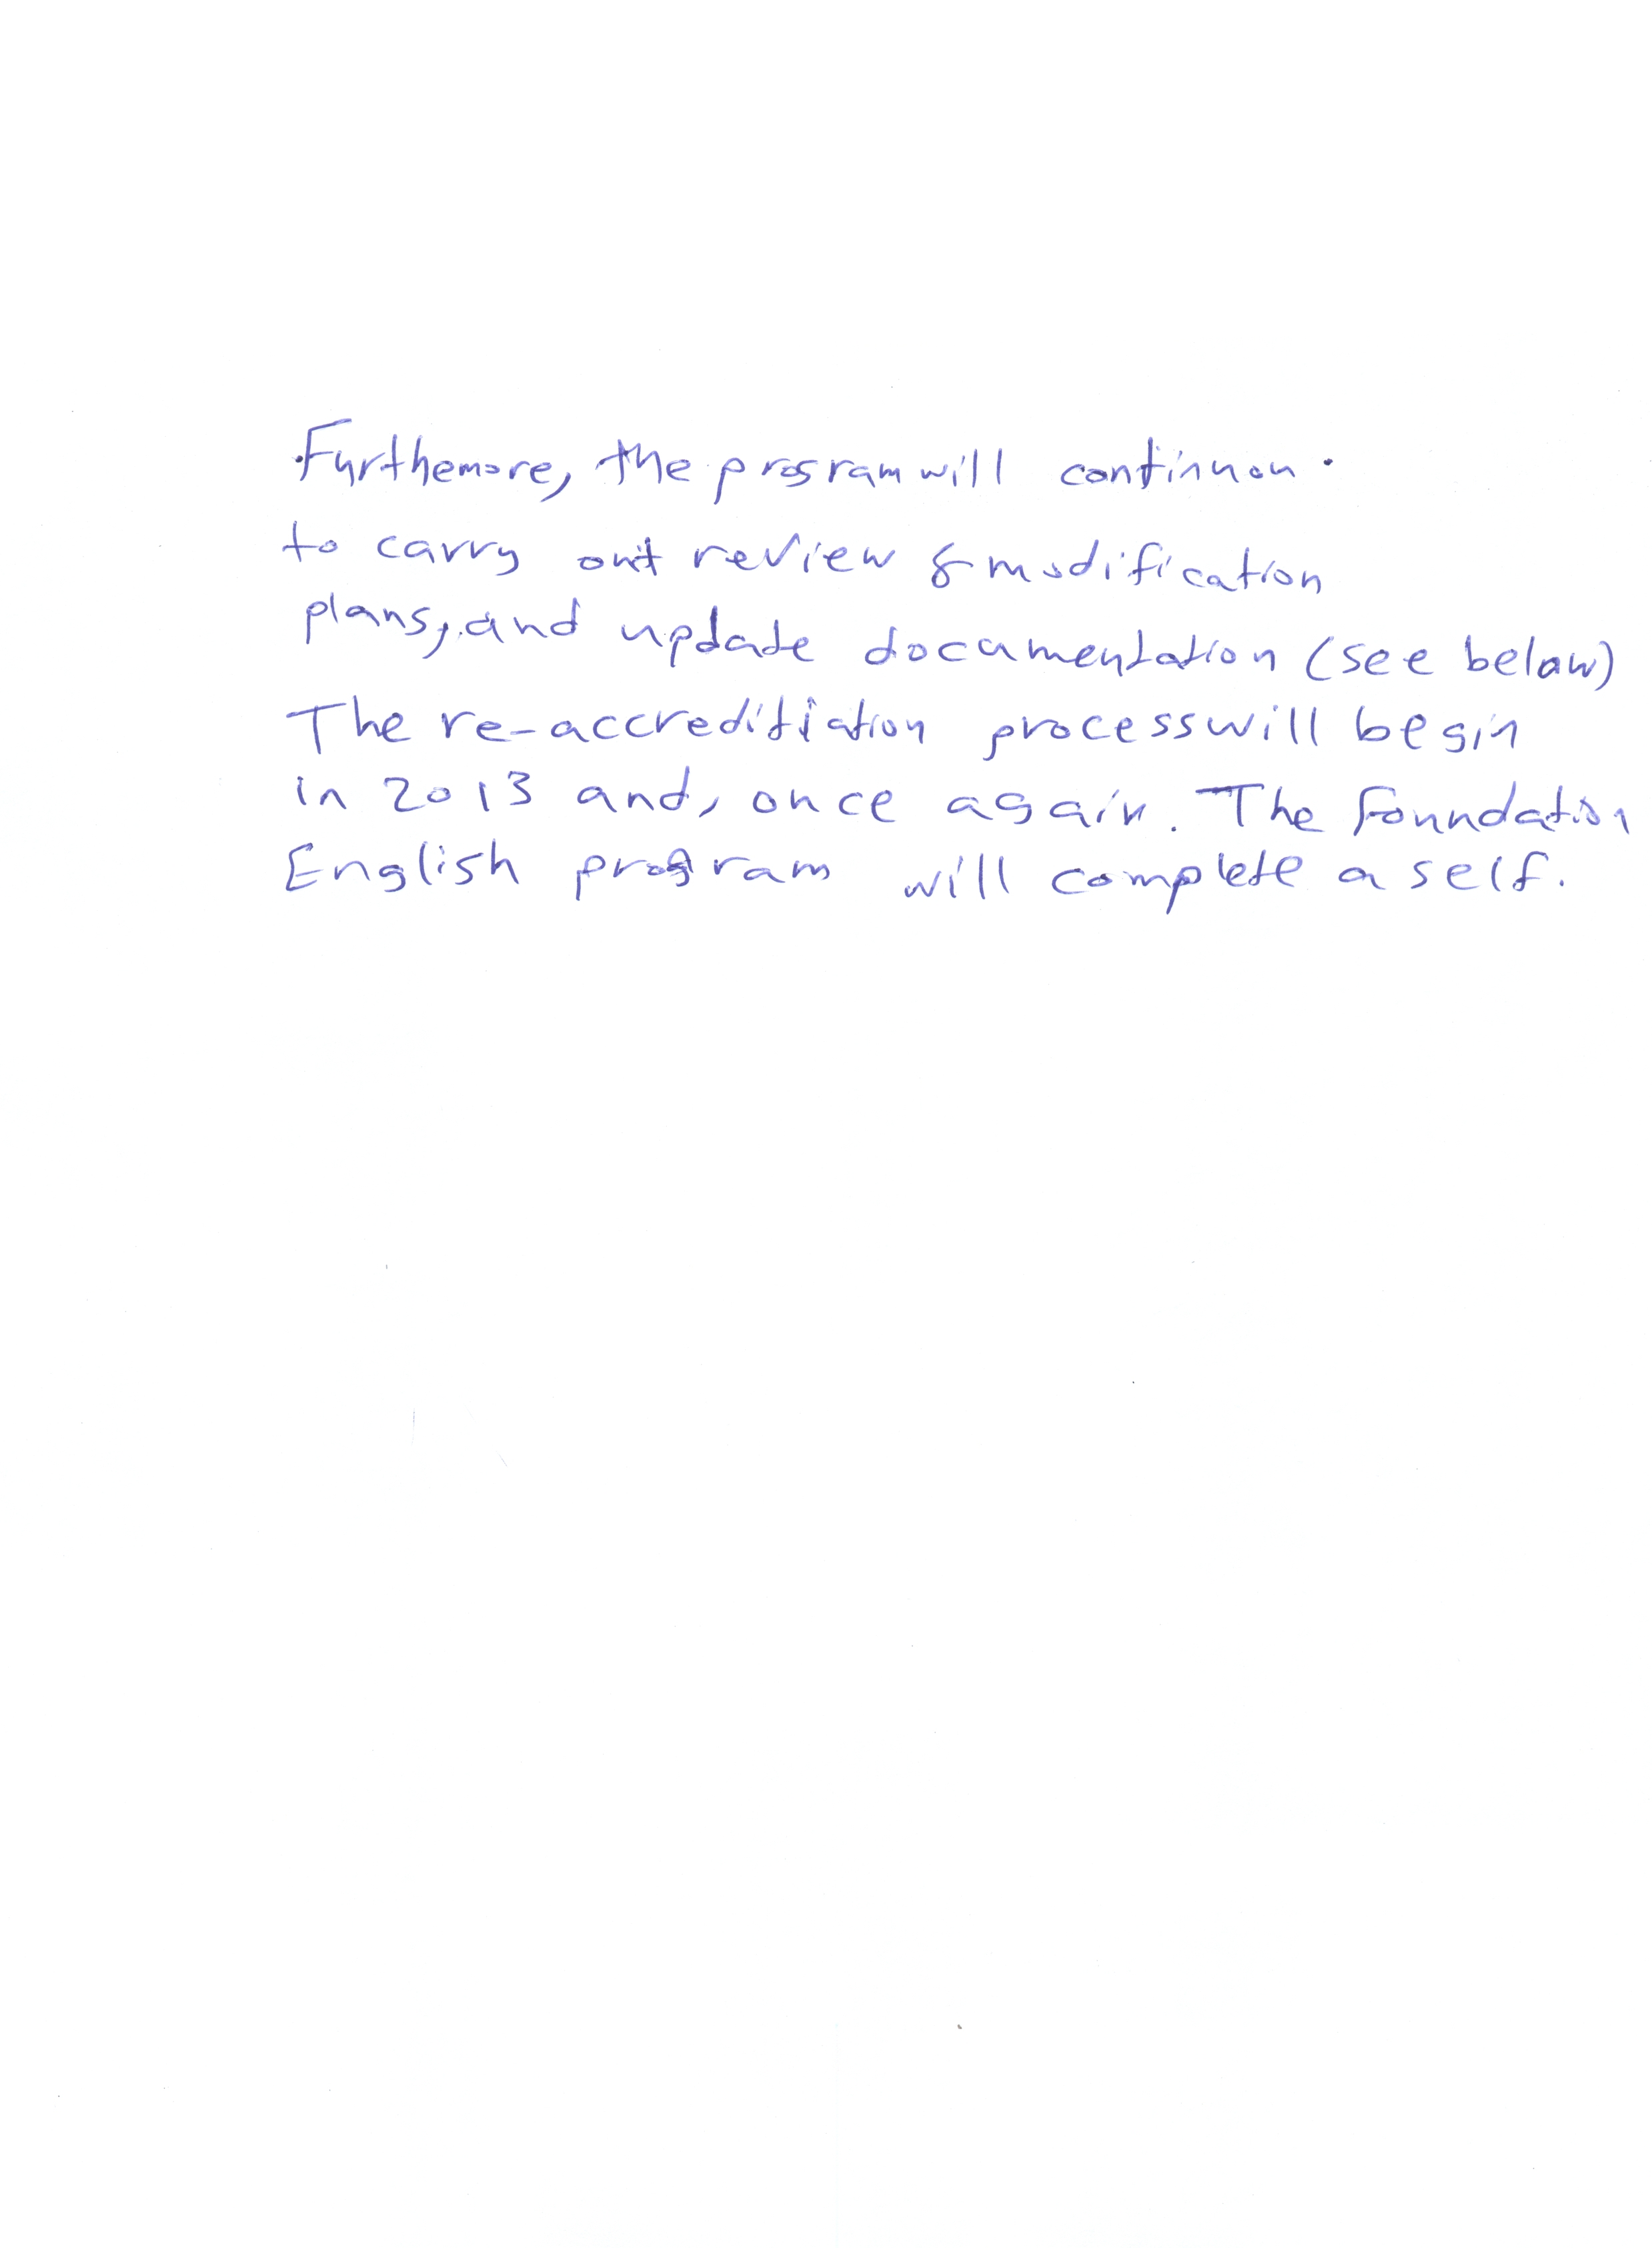 Furthemore, the program will continuou.
to carry out review & modification
plans, and update documentation (see below)
The re-accreditiation process will begin
in 2013 and, once again. The Foundation
English program will complete a self.